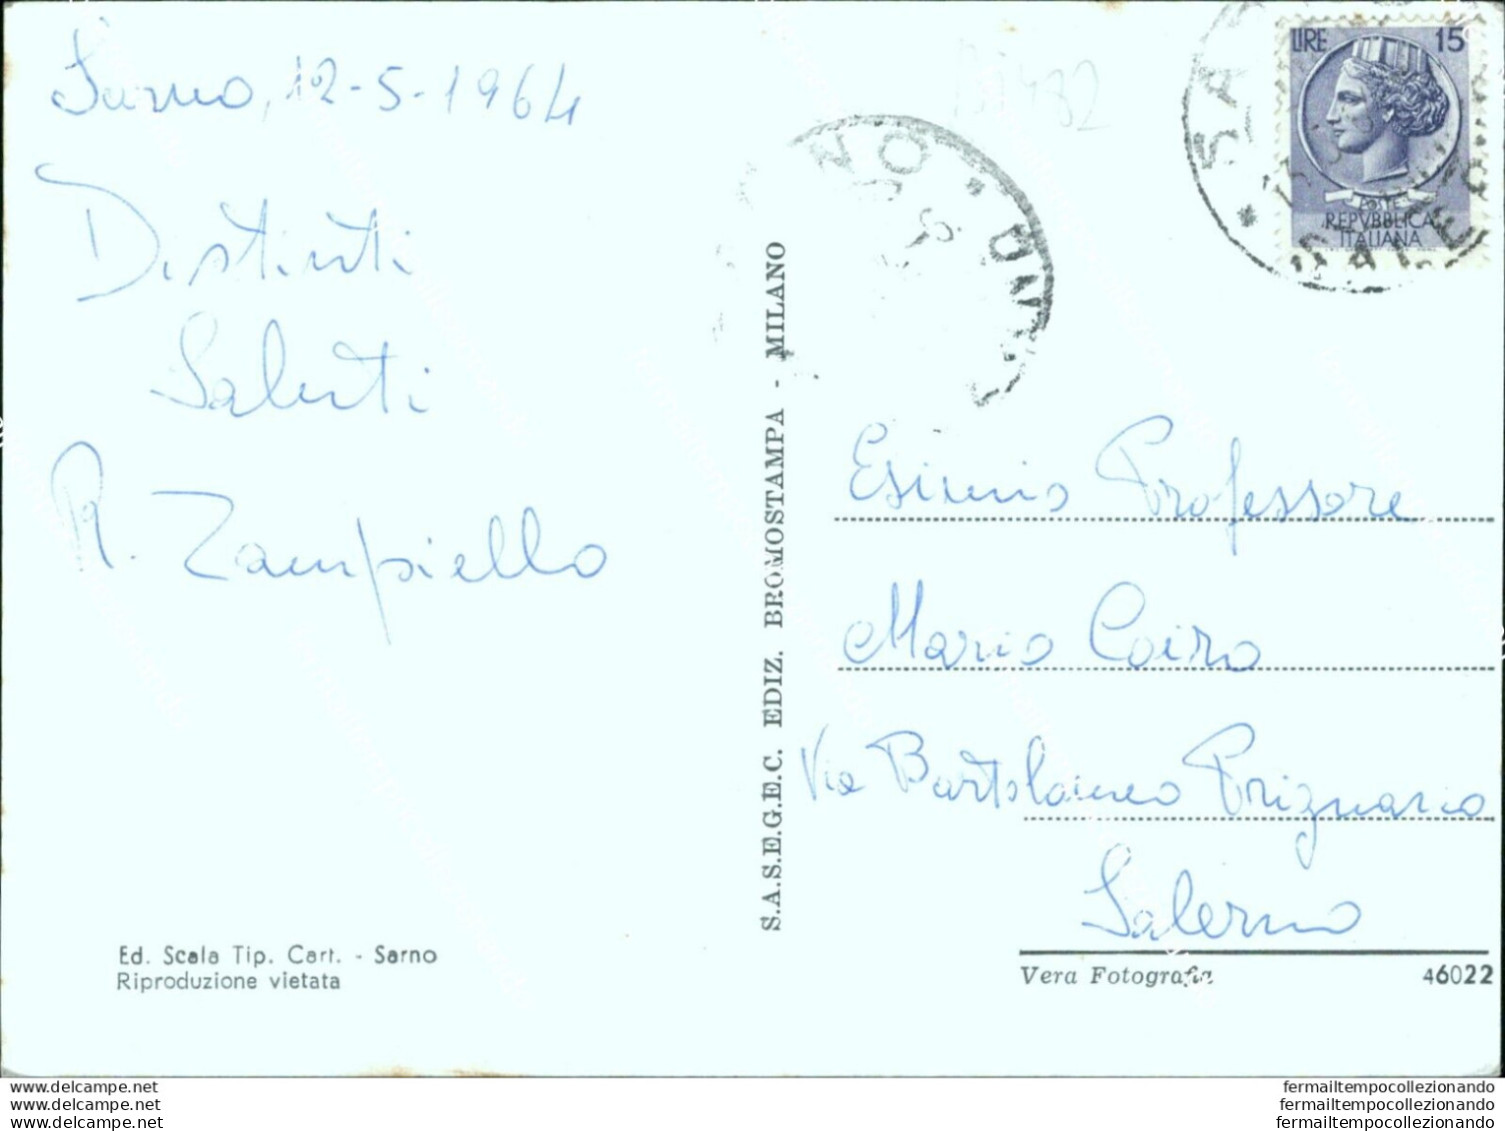 Sarno, 12-5-1964
Distinti
Saluti
R. Zampiello
Ed. Scala Tip. Cart. - Sarno
Riproduzione vietata
S.A.S.E.G.E.C. EDIZ. BROMOSTAMPA - MILANO
LIRE 15
POSTE
REPVBBLICA
ITALIANA
Esimio Professore
Mario Coiro
Via Bartolomeo Prignano
Salerno
Vera Fotografia
46022
www.delcampe.net
www.delcampe.net
www.delcampe.net
fermailtempocollezionando
fermailtempocollezionando
fermailtempocollezionando